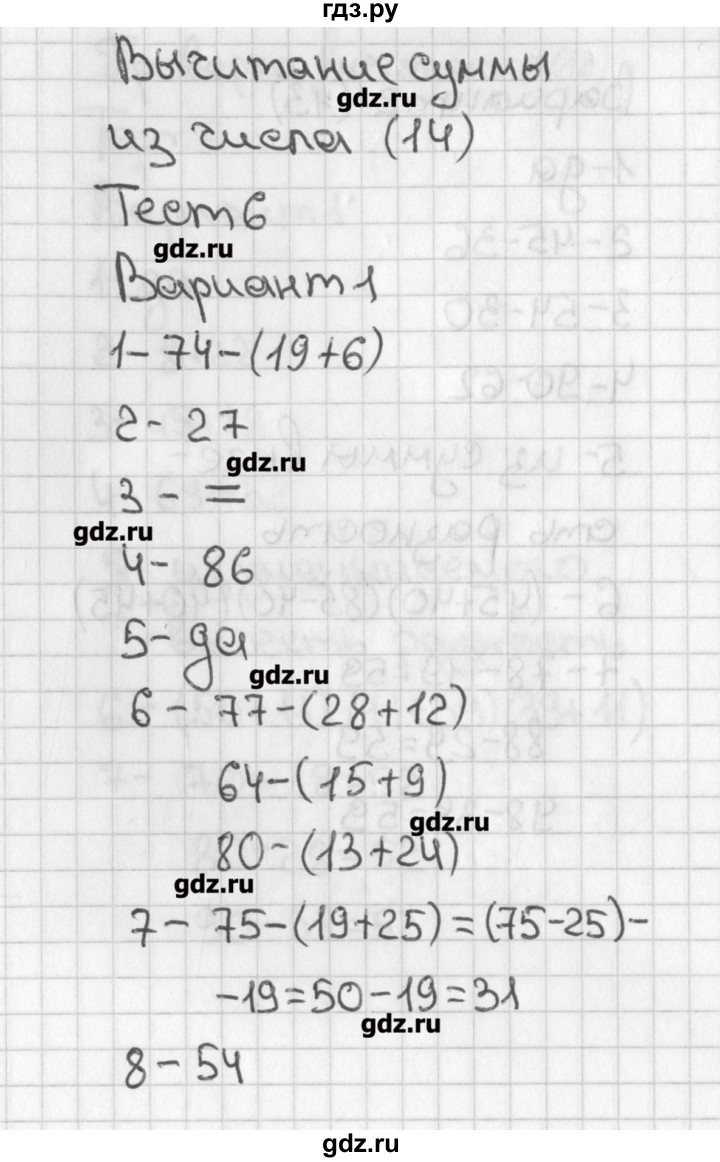 гдз.ру
Вычитание суммы
gdz.ru
из числа (14)
Тест 6
gdz.ru
Вариант 1
1- 74-(19+6)
2- 27
gdz.ru
3 - =
gdz.ru
4- 86
5- да
gdz.ru
6 - 77-(28+12)
64-(15+9)
gdz.ru
80-(13+24)
gdz.ru
7- 75-(19+25)=(75-25)-
-19=50-19=31
gdz.ru
8 - 54
gdz.ru